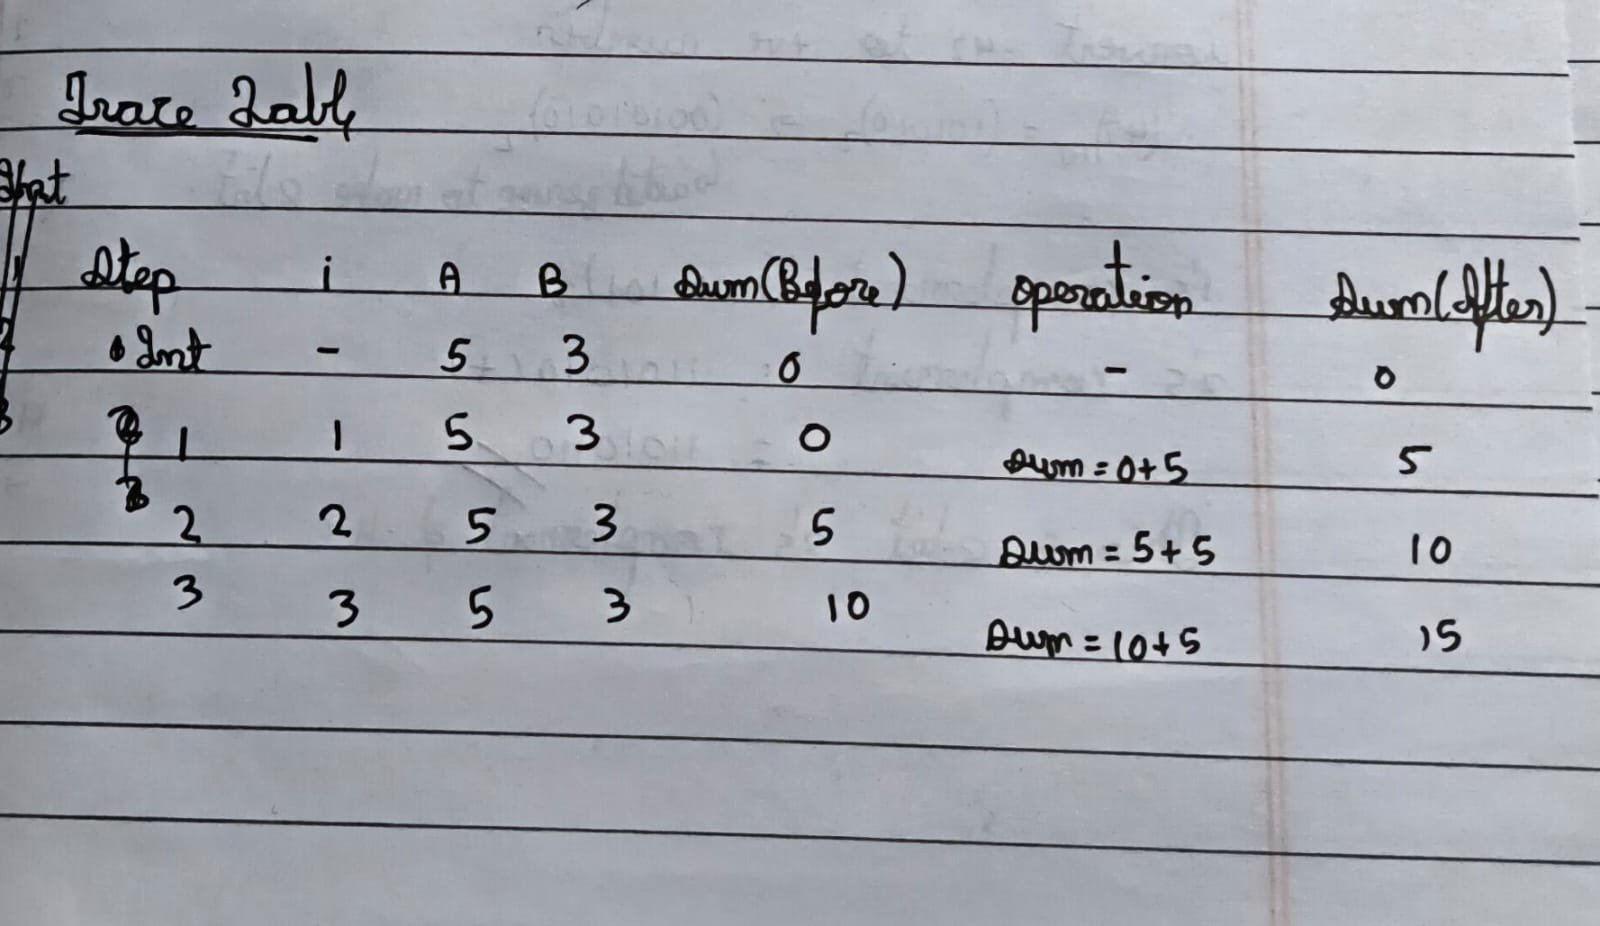 Trace Table
Step i A B Sum(Before) operation Sum(After)
Int - 5 3 0 - 0
1 1 5 3 0 Sum = 0+5 5
2 2 5 3 5 Sum = 5+5 10
3 3 5 3 10 Sum = 10+5 15